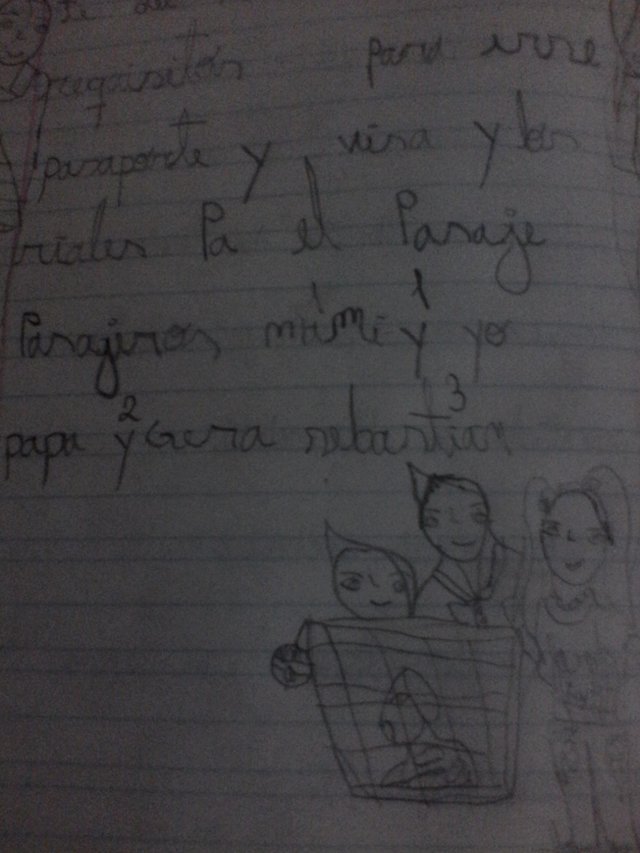 requisitos para irre
pasaporte y visa y los
riales Pa el Pasaje
Pasajeros mimi y 1 yo
papa y 2 Gera sebastian 3